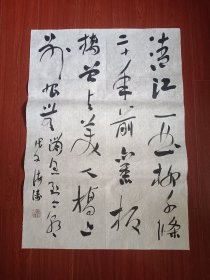 清江一曲柳千條
二十年前舊板
橋曾与美人橋上
别恨無消息到今朝